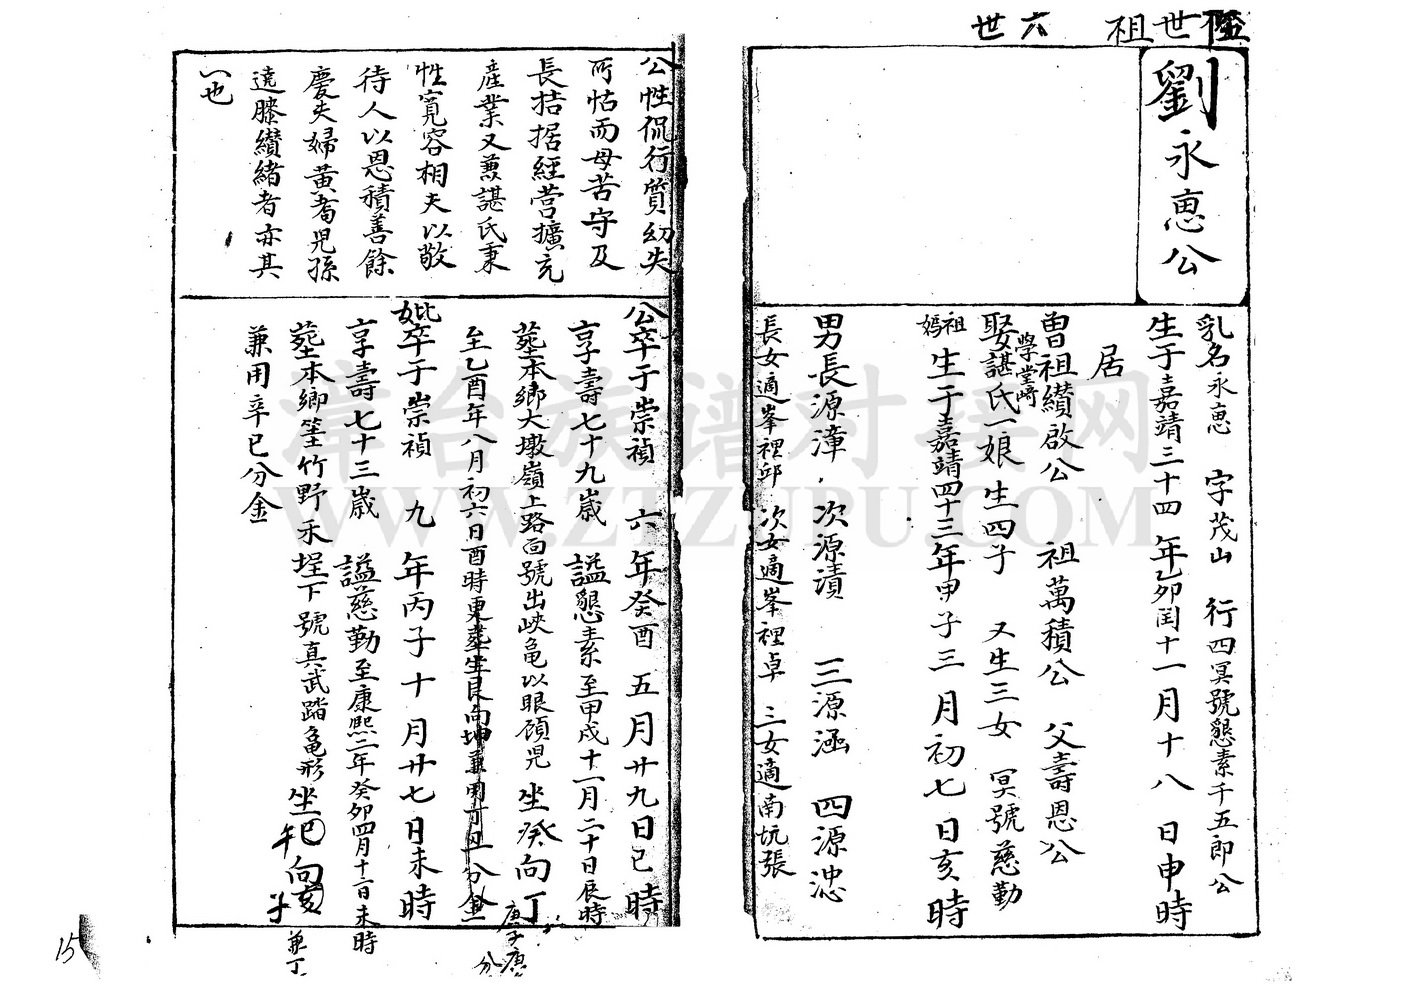 六世
世祖
劉永惠公
乳名永惠 字茂山 行四冥號懇素千五郎公
生于嘉靖三十四年乙卯閏十一月十八日申時
居
曾祖纘啟公 祖萬積公 父壽恩公
學堂崎
娶諶氏一娘 生四子 又生三女 冥號慈勤
祖媽
生于嘉靖四十三年甲子三月初七日亥時
男長源漳 次源漬 三源涵 四源淴
長女適峯裡邱 次女適峯裡卓 三女適南坑張
公性侃行質幼失
所怙而母苦守及
長拮据經營擴充
產業又兼諶氏秉
性寬容相夫以敬
待人以恩積善餘
慶夫婦黃耇兒孫
遶膝纘緒者亦其
一也
公卒于崇禎 六 年癸酉五月廿九日巳時
享壽七十九歲 謚懇素至甲戌十一月二十日辰時
塟本鄉大墩嶺上路面號出峽龜以眼顧兒 坐癸向丁
庚子庚
分
至乙酉年八月初六日酉時更塟坐艮向坤兼用丁丑分金
妣卒于崇禎 九 年丙子十月廿七日未時
享壽七十三歲 謚慈勤至康熙二年癸卯四月十二日未時
塟本鄉笙竹野禾埕下 號真武踏龜形坐巳向亥
午 子 兼丁
兼用辛巳分金
15
岸台族谱对接网
WWW.ZTZUPU.COM